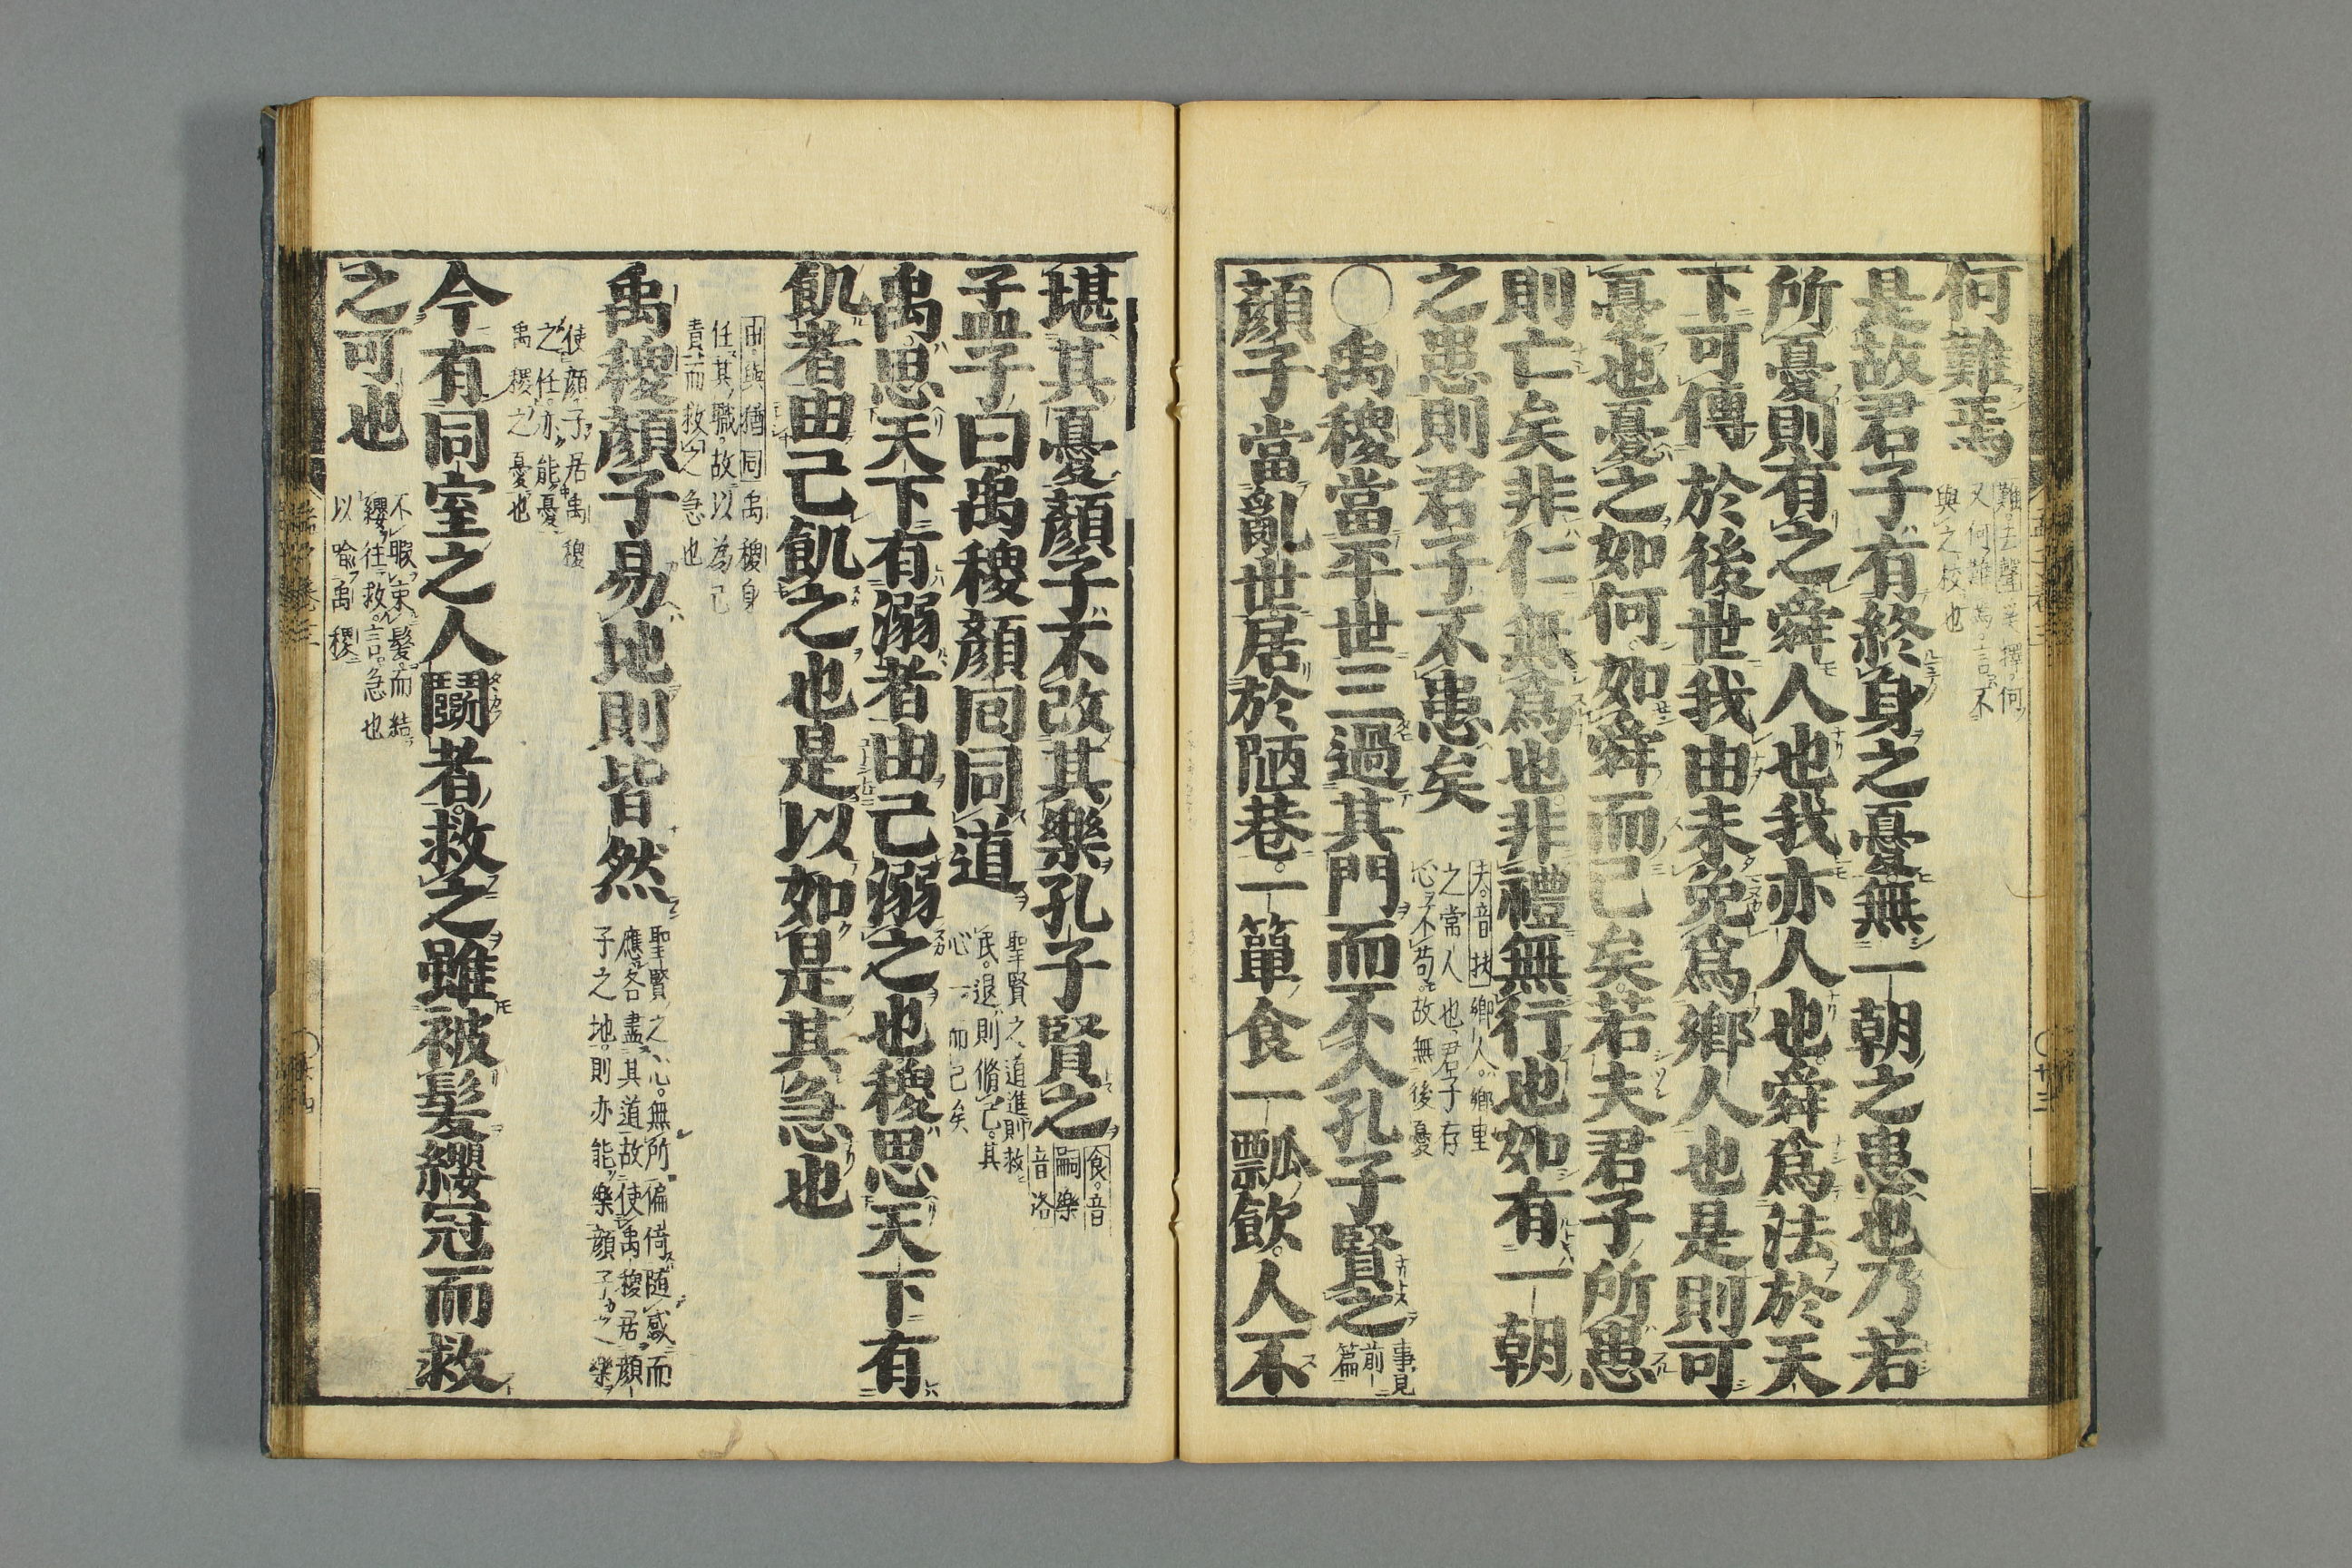 何難焉
難去聲
奚擇何
又何難焉言不
與之校也
是故君子有終身之憂無一朝之患也乃若
所憂則有之舜人也我亦人也舜爲法於天
下可傳於後世我由未免爲鄉人也是則可
憂也憂之如何如舜而已矣若夫君子所患
則亡矣非仁無爲也非禮無行也如有一朝
之患則君子不患矣
夫音扶鄉人鄉里
之常人也君子存
心不苟故無後憂
○禹稷當平世三過其門而不入孔子賢之
事見
前篇
顏子當亂世居於陋巷一簞食一瓢飲人不
堪其憂顏子不改其樂孔子賢之
食音
嗣樂
音洛
孟子曰禹稷顏回同道
聖賢之道進則救
民退則脩己其
心一而已矣
禹思天下有溺者由己溺之也稷思天下有
飢者由己飢之也是以如是其急也
由與猶同禹稷身
任其職故以為己
責而救之急也
禹稷顏子易地則皆然
聖賢之心無所偏倚隨感而
應各盡其道故使禹稷居顏
子之地則亦能樂顏子之樂
使顏子居禹稷
之任亦能憂
禹稷之憂也
今有同室之人鬭者救之雖被髮纓冠而救
之可也
不暇束髮而結
纓往救言急也
以喩禹稷